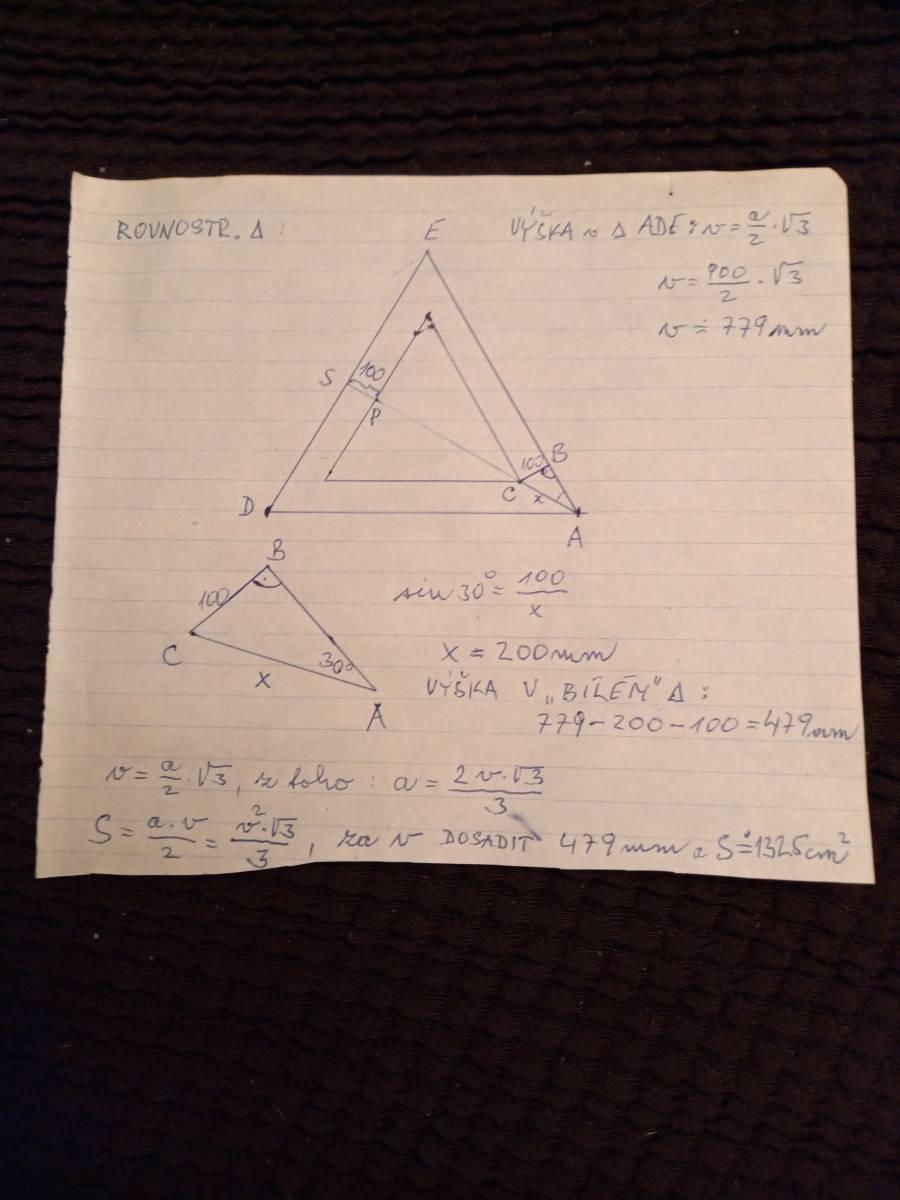 ROVNOSTR. Δ :
VÝŠKA v Δ ADE: v = a/2 · √3
v = 900/2 · √3
v ≐ 779 mm
E
S
100
P
D
100
B
C
x
A
B
100
C
x
30°
A
sin 30° = 100/x
x = 200 mm
VÝŠKA V „BÍLÉM" Δ :
779 – 200 – 100 = 479 mm
v = a/2 · √3, z toho : a = 2v·√3/3
S = a·v/2 = v²·√3/3, za v DOSADIT 479 mm a S ≐ 1325 cm²